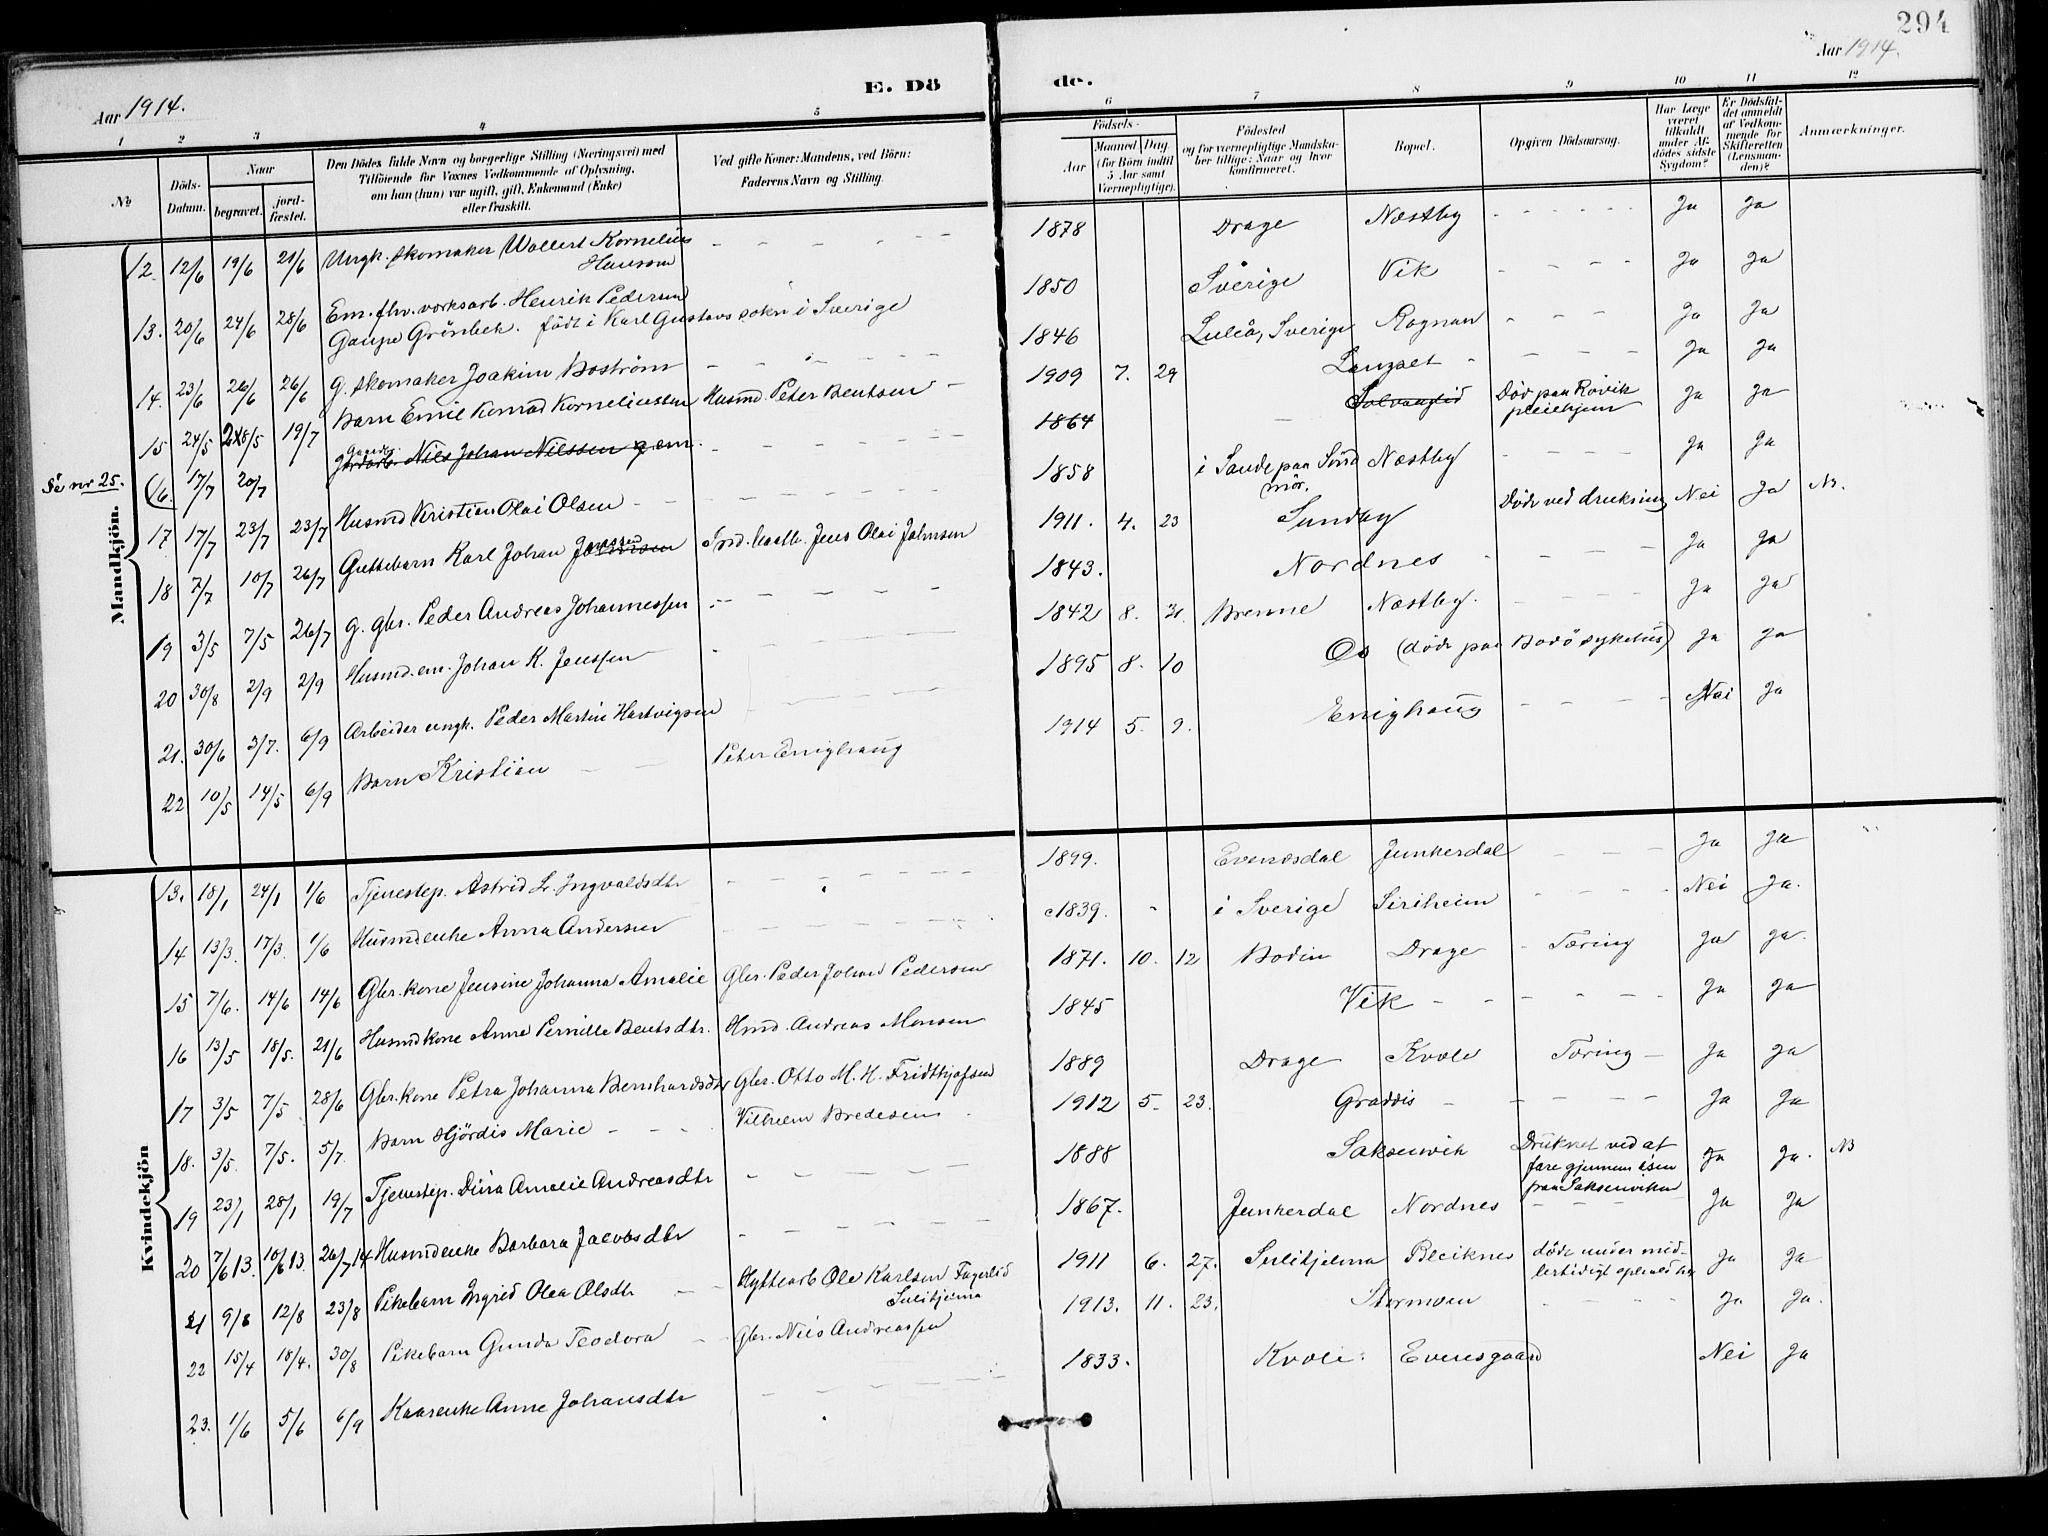 294
Aar 1914.
E. Dö
de.
Aar 1914.
1 2 3 4 5
6 7 8 9 10 11 12
No
Döds-Datum.
Naar
begravet.
jord-fæstet.
Den Dödes fulde Navn og borgerlige Stilling (Næringsvei) med
Tilföiende for Voxnes Vedkommende af Oplysning,
om han (hun) var ugift, gift, Enkemand (Enke)
eller fraskilt.
Ved gifte Koner: Mandens, ved Börn:
Faderens Navn og Stilling.
Födsels-
Aar
Maaned Dag
(for Börn indtil
5 Aar samt
Værnepligtige).
Födested
og for værnepligtige Mandska-
ber tillige: Naar og hvor
konfirmeret.
Bopæl.
Opgiven Dödsaarsag.
Har Læge
været
tilkaldt
under Af-
dödes sidste
Sygdom?
Er Dödsfal-
det anmeldt
af Vedkom-
mende for
Skifteretten
(Lensman-
den)?
Anmærkninger.
Mandkjön.
12. 12/6 19/6 21/6 Ungk. skomaker Wollert Kornelius Hansen 1878 Drage Næstby Ja Ja
13. 20/6 24/6 28/6 Em. fhv. verksarb. Henrik Pedersen 1850 Sverige Vik Ja Ja
Gaupe Grönbek. födt i Karl Gustavs sokn i Sverige
14. 23/6 26/6 26/6 G. skomaker Joakim Boström 1846 Luleå, Sverige Rognan Ja Ja
15 24/5 28/5 19/7 Barn Emil Konrad Korneliussen Husmd. Peter Bentsen 1909 7. 29 Ja Ja
Se nr 25.
16. 17/7 20/7 Gaardbr. Nils Johan Nilssen g em. 1864 Solvaaglid Död paa Rövik pleiehjem Ja Ja
17 17/7 23/7 23/7 Husmd Kristian Olai Olsen 1858 i Sande paa Sönd mör. Næstby Ja Ja
18 7/7 10/7 26/7 Guttebarn Karl Johan Jenssen Jens Olai Johnsen 1911. 4. 23 Sundby Döde ved drukning Nei Ja NB.
19 3/5 7/5 26/7 G. gbr. Peder Andreas Johannessen 1843. Nordnes Ja Ja
20 30/8 2/9 2/9 Husmd. em. Johan K. Jenssen 1842 8. 31. Brenne Næstby. Ja Ja
21. 30/6 3/7. 6/9 Arbeider ungk. Peder Martin Hartvigsen 1895 8. 10 Os (döde paa Bodö sykehus) Ja Ja
22 10/5 14/5 6/9 Barn Kristian Peter Enighaug 1914 5. 9. Enighaug Nei Ja
Kvindekjön
13. 18/1 24/1 1/6 Tjenestep. Astrid L. Ingvaldsdtr 1899. Evenesdal Junkerdal Ja Ja
14 13/3. 17/3. 1/6 Husmdenke Anna Andersen c1839. i Sverige Siriheim Nei Ja.
15 7/6. 14/6 14/6 Gbr. kone Jensine Johanna Amalie Gbr. Peder Johan Pedersen 1871. 10. 12 Bodin Drage Tæring Ja Ja.
16 13/5 18/5. 21/6 Husmdkone Anne Pernille Bentsdtr. Hmd. Andreas Monsen 1845 Vik Ja Ja
17 3/5 7/5 28/6 Gbr. kone Petra Johanna Bernhardsdtr Gbr. Otto M. H. Fridthjofsen 1889 Drage Kvæle Tæring Ja Ja
18. 3/5. 7/5. 5/7. Barn Hjördis Marie Vilhelm Bredesen 1912 5. 23. Graddis Ja Ja
19 23/1 28/1 19/7 Tjenestep. Dina Amalie Andreasdtr 1888 Saksenvik Druknet ved at fare gjennem isen paa Saksenviken Ja Ja. NB
20 7/6 13. 10/6 13. 26/7 14 Husmdenke Barbara Jacobsdtr 1867. Junkerdal Nordnes Ja Ja
21 9/8 12/8 23/8 Pikebarn Ingrid Olea Olsdtr Hyttearb Ole Karlsen Fagerlid Sulitjelma 1911 6. 27. Sulitjelma Bleiknes döde under mid-lertidigt ophold her Ja Ja
22 15/4 18/4. 30/8 Pikebarn Gunda Teodora Gbr. Nils Andreassen 1913. 11. 23. Stormoen Ja Ja.
23. 1/6 5/6 6/9 Kaarenke Anne Johansdtr 1833. Kvæle. Evensgaard Nei Ja